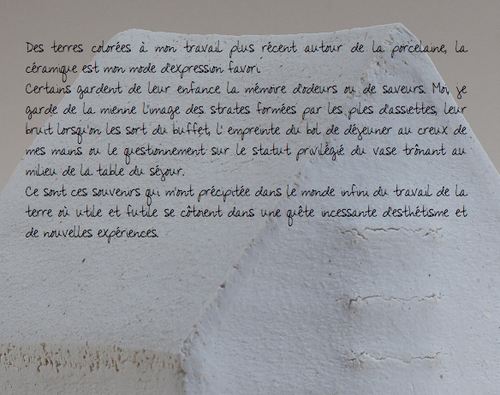 Des terres colorées à mon travail plus récent autour de la porcelaine, la
céramique est mon mode d'expression favori.
Certains gardent de leur enfance la mémoire d'odeurs ou de saveurs. Moi, je
garde de la mienne l'image des strates formées par les piles d'assiettes, leur
bruit lorsqu'on les sort du buffet, l'empreinte du bol de déjeuner au creux de
mes mains ou le questionnement sur le statut privilégié du vase trônant au
milieu de la table du séjour.
Ce sont ces souvenirs qui m'ont précipitée dans le monde infini du travail de la
terre où utile et futile se côtoient dans une quête incessante d'esthétisme et
de nouvelles expériences.